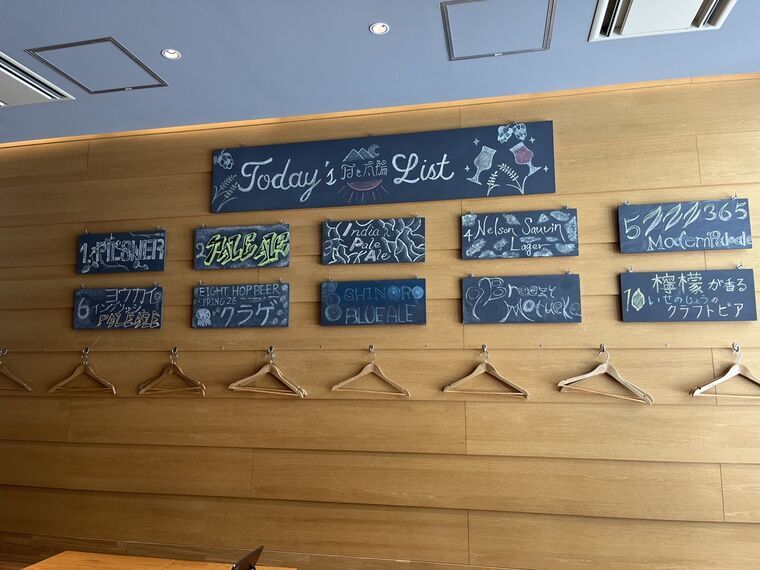 Today's 月と太陽 List
1. PILSNER
2 PALE ALE
3 India
Pale
Ale
4 Nelson Sauvin
Lager
5 365
Modern Pale ale
6 ヨウカイ
PALE ALE
EIGHT HOP BEER
SPRING 26
クラゲ
8 SHINORO
BLUE ALE
9 Breezy
Motueka
10 檸檬が香る
いせのじょうの
クラフトビア